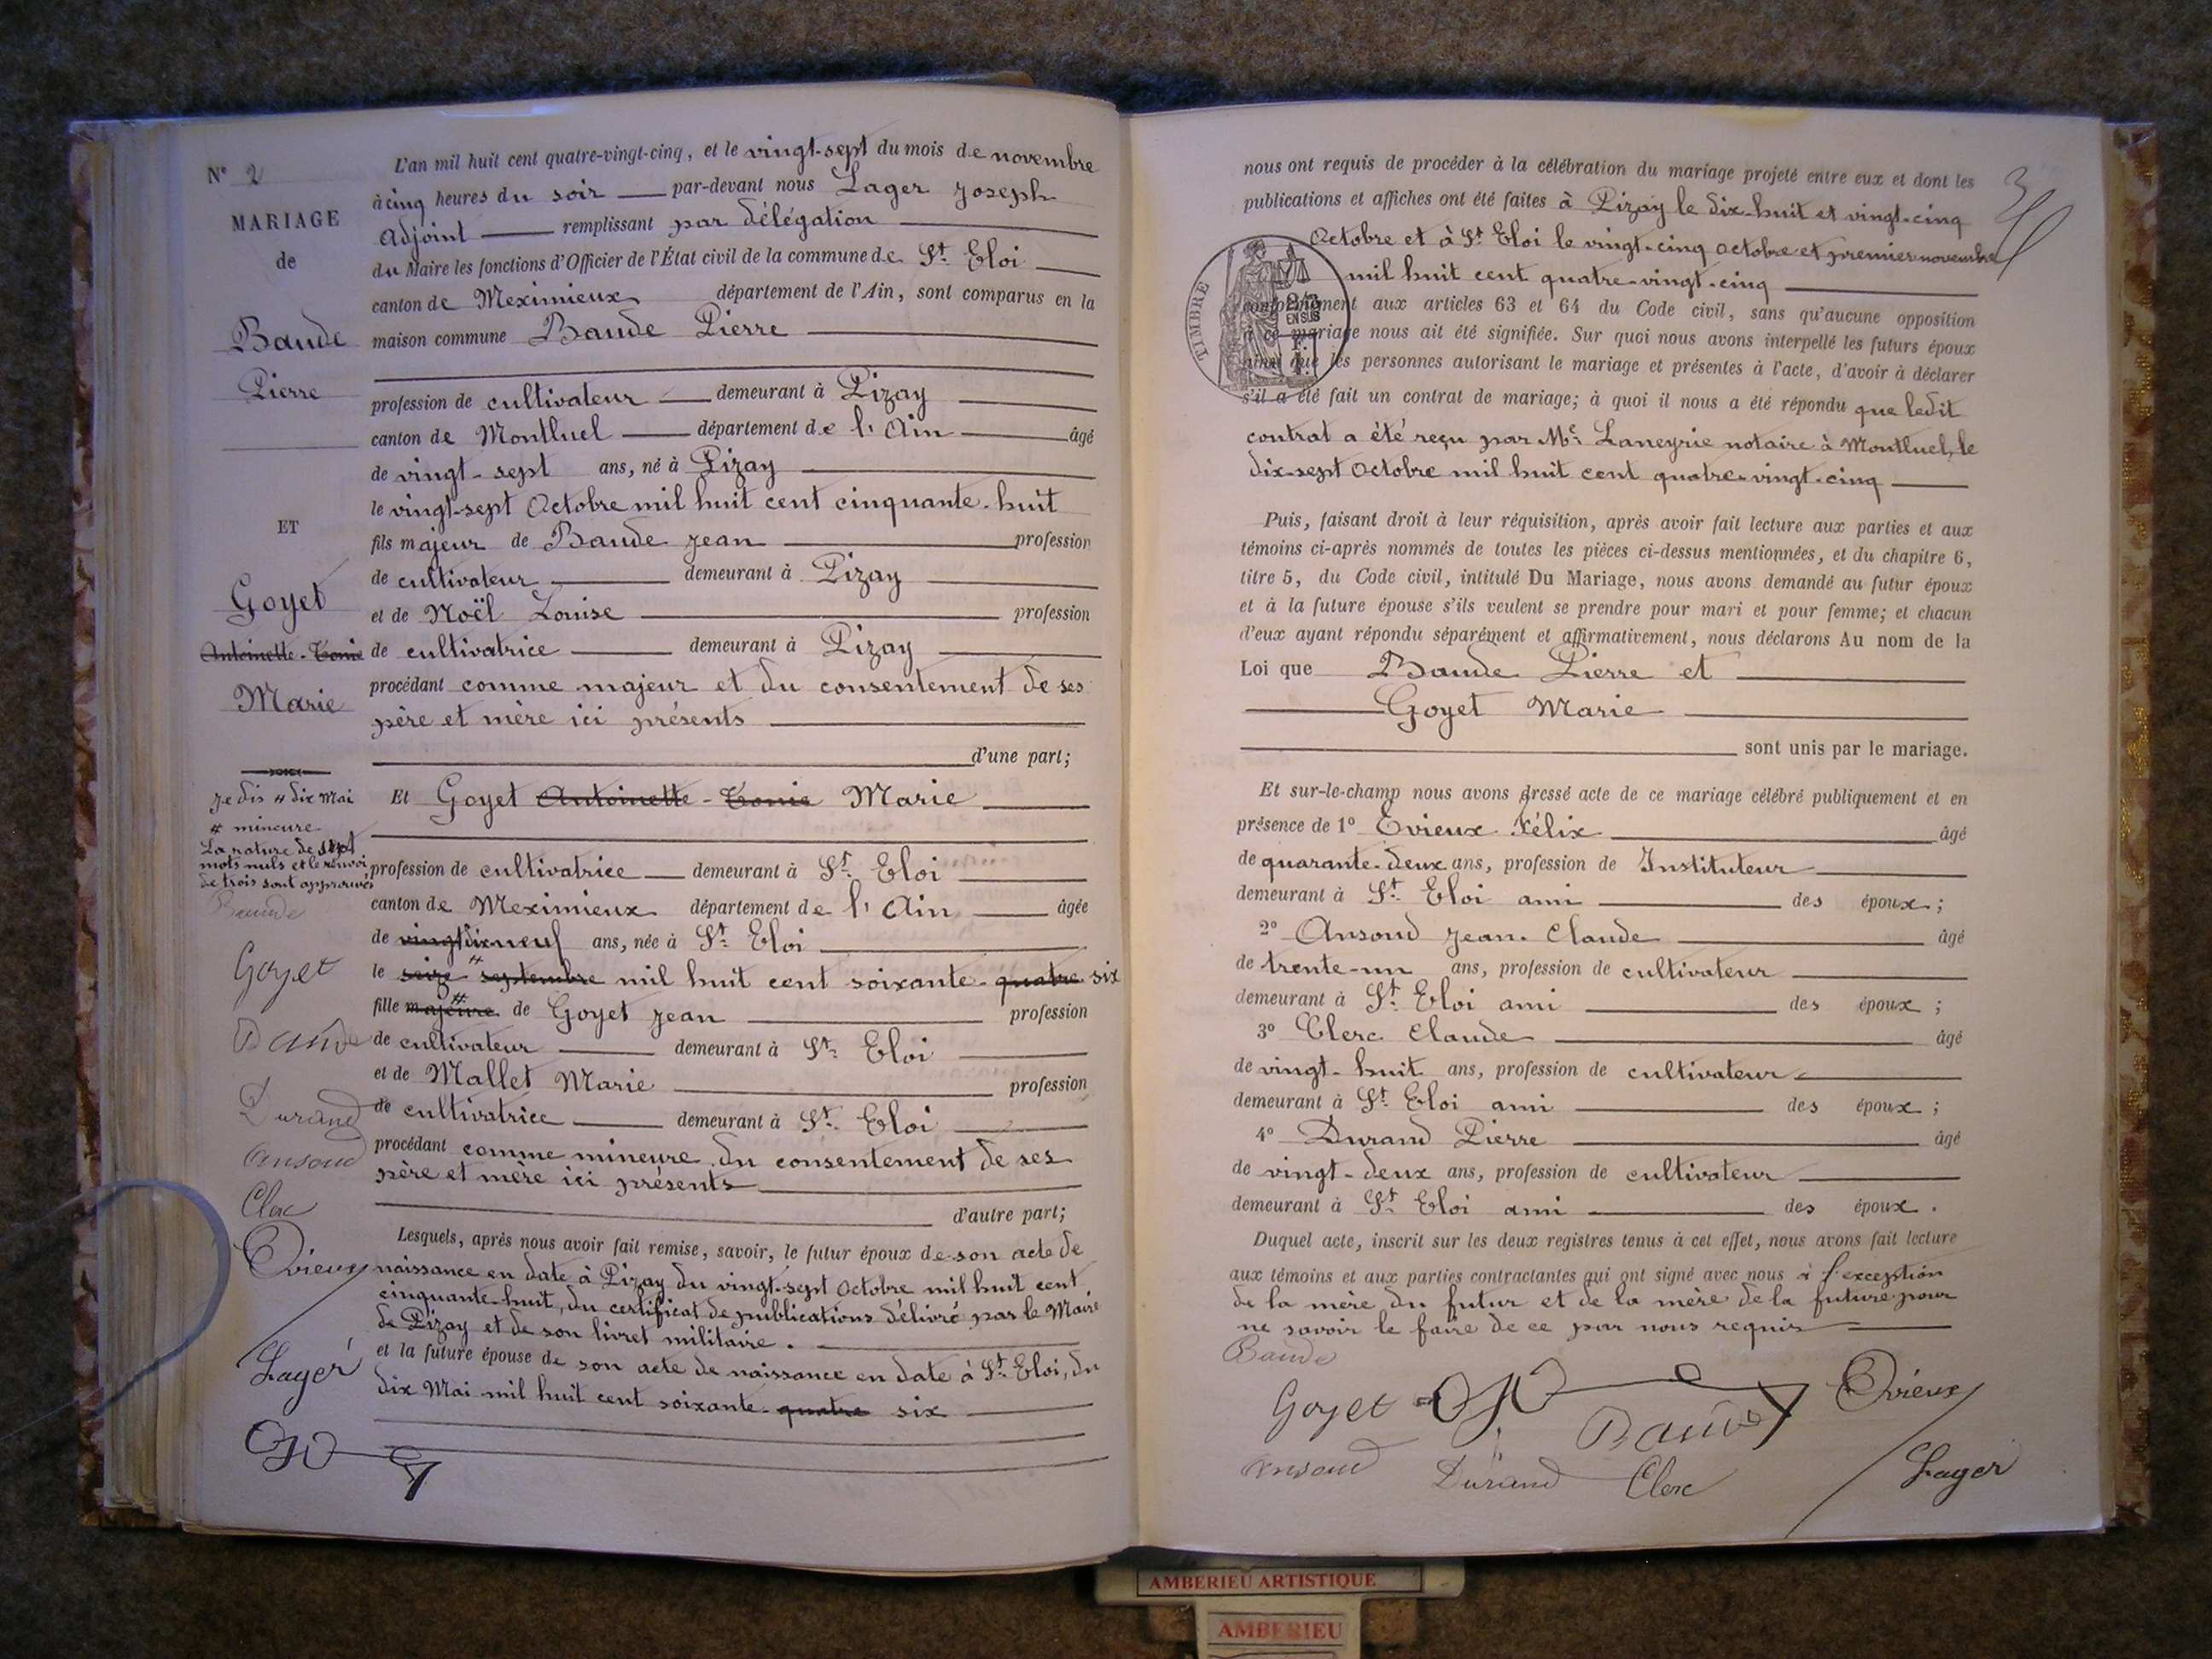 N° 2
MARIAGE
de
Baude
Pierre
ET
Goyet
Antoinette-Tonie
Marie
je dis # dix Mai
# mineure
La rature de sept
mots nuls et le renvoi
de trois sont approuvés
Baude
Goyet
Baude
Durand
Ansoud
Clerc
Evieux
Lager
L'an mil huit cent quatre-vingt-cinq, et le vingt-sept du mois de novembre
à cinq heures du soir par-devant nous Lager Joseph
Adjoint remplissant par délégation
du Maire les fonctions d'Officier de l'État civil de la commune de St. Eloi
canton de Meximieux département de l'Ain, sont comparus en la
maison commune Baude Pierre
profession de cultivateur demeurant à Pizay
canton de Montluel département de l'Ain âgé
de vingt-sept ans, né à Pizay
le vingt-sept Octobre mil huit cent cinquante-huit
fils majeur de Baude Jean profession
de cultivateur demeurant à Pizay
et de Noël Louise profession
de cultivatrice demeurant à Pizay
procédant comme majeur et du consentement de ses
père et mère ici présents
d'une part;
Et Goyet Antoinette-Tonie Marie
profession de cultivatrice demeurant à St. Eloi
canton de Meximieux département de l'Ain âgée
de vingt dix neuf ans, née à St. Eloi
le seize # septembre mil huit cent soixante-quatre six
fille majeure # de Goyet Jean profession
de cultivateur demeurant à St. Eloi
et de Mallet Marie profession
de cultivatrice demeurant à St. Eloi
procédant comme mineure du consentement de ses
père et mère ici présents
d'autre part;
Lesquels, après nous avoir fait remise, savoir, le futur époux de son acte de
naissance en date à Pizay du vingt-sept Octobre mil huit cent
cinquante-huit, du certificat de publications délivré par le Maire
de Pizay et de son livret militaire.
et la future épouse de son acte de naissance en date à St. Eloi, du
dix Mai mil huit cent soixante-quatre six
nous ont requis de procéder à la célébration du mariage projeté entre eux et dont les
publications et affiches ont été faites à Pizay le dix-huit et vingt-cinq
Octobre et à St. Eloi le vingt-cinq octobre et premier novembre
mil huit cent quatre-vingt-cinq
TIMBRE
2/10
EN SUS
conformément aux articles 63 et 64 du Code civil, sans qu'aucune opposition
à ce mariage nous ait été signifiée. Sur quoi nous avons interpellé les futurs époux
ainsi que les personnes autorisant le mariage et présentes à l'acte, d'avoir à déclarer
s'il a été fait un contrat de mariage; à quoi il nous a été répondu que ledit
contrat a été reçu par Me. Laneyrie notaire à Montluel, le
dix-sept Octobre mil huit cent quatre-vingt-cinq
Puis, faisant droit à leur réquisition, après avoir fait lecture aux parties et aux
témoins ci-après nommés de toutes les pièces ci-dessus mentionnées, et du chapitre 6,
titre 5, du Code civil, intitulé Du Mariage, nous avons demandé au futur époux
et à la future épouse s'ils veulent se prendre pour mari et pour femme; et chacun
d'eux ayant répondu séparément et affirmativement, nous déclarons Au nom de la
Loi que Baude Pierre et
Goyet Marie
sont unis par le mariage.
Et sur-le-champ nous avons dressé acte de ce mariage célébré publiquement et en
présence de 1° Evieux Félix âgé
de quarante-deux ans, profession de Instituteur
demeurant à St. Eloi ami des époux;
2° Ansoud Jean-Claude âgé
de trente-un ans, profession de cultivateur
demeurant à St. Eloi ami des époux;
3° Clerc Claude âgé
de vingt-huit ans, profession de cultivateur
demeurant à St. Eloi ami des époux;
4° Durand Pierre âgé
de vingt-deux ans, profession de cultivateur
demeurant à St. Eloi ami des époux.
Duquel acte, inscrit sur les deux registres tenus à cet effet, nous avons fait lecture
aux témoins et aux parties contractantes qui ont signé avec nous à l'exception
de la mère du futur et de la mère de la future pour
ne savoir le faire de ce par nous requis
Baude
Goyet
Baude
Evieux
Ansoud
Durand
Clerc
Lager
AMBERIEU ARTISTIQUE
AMBERIEU